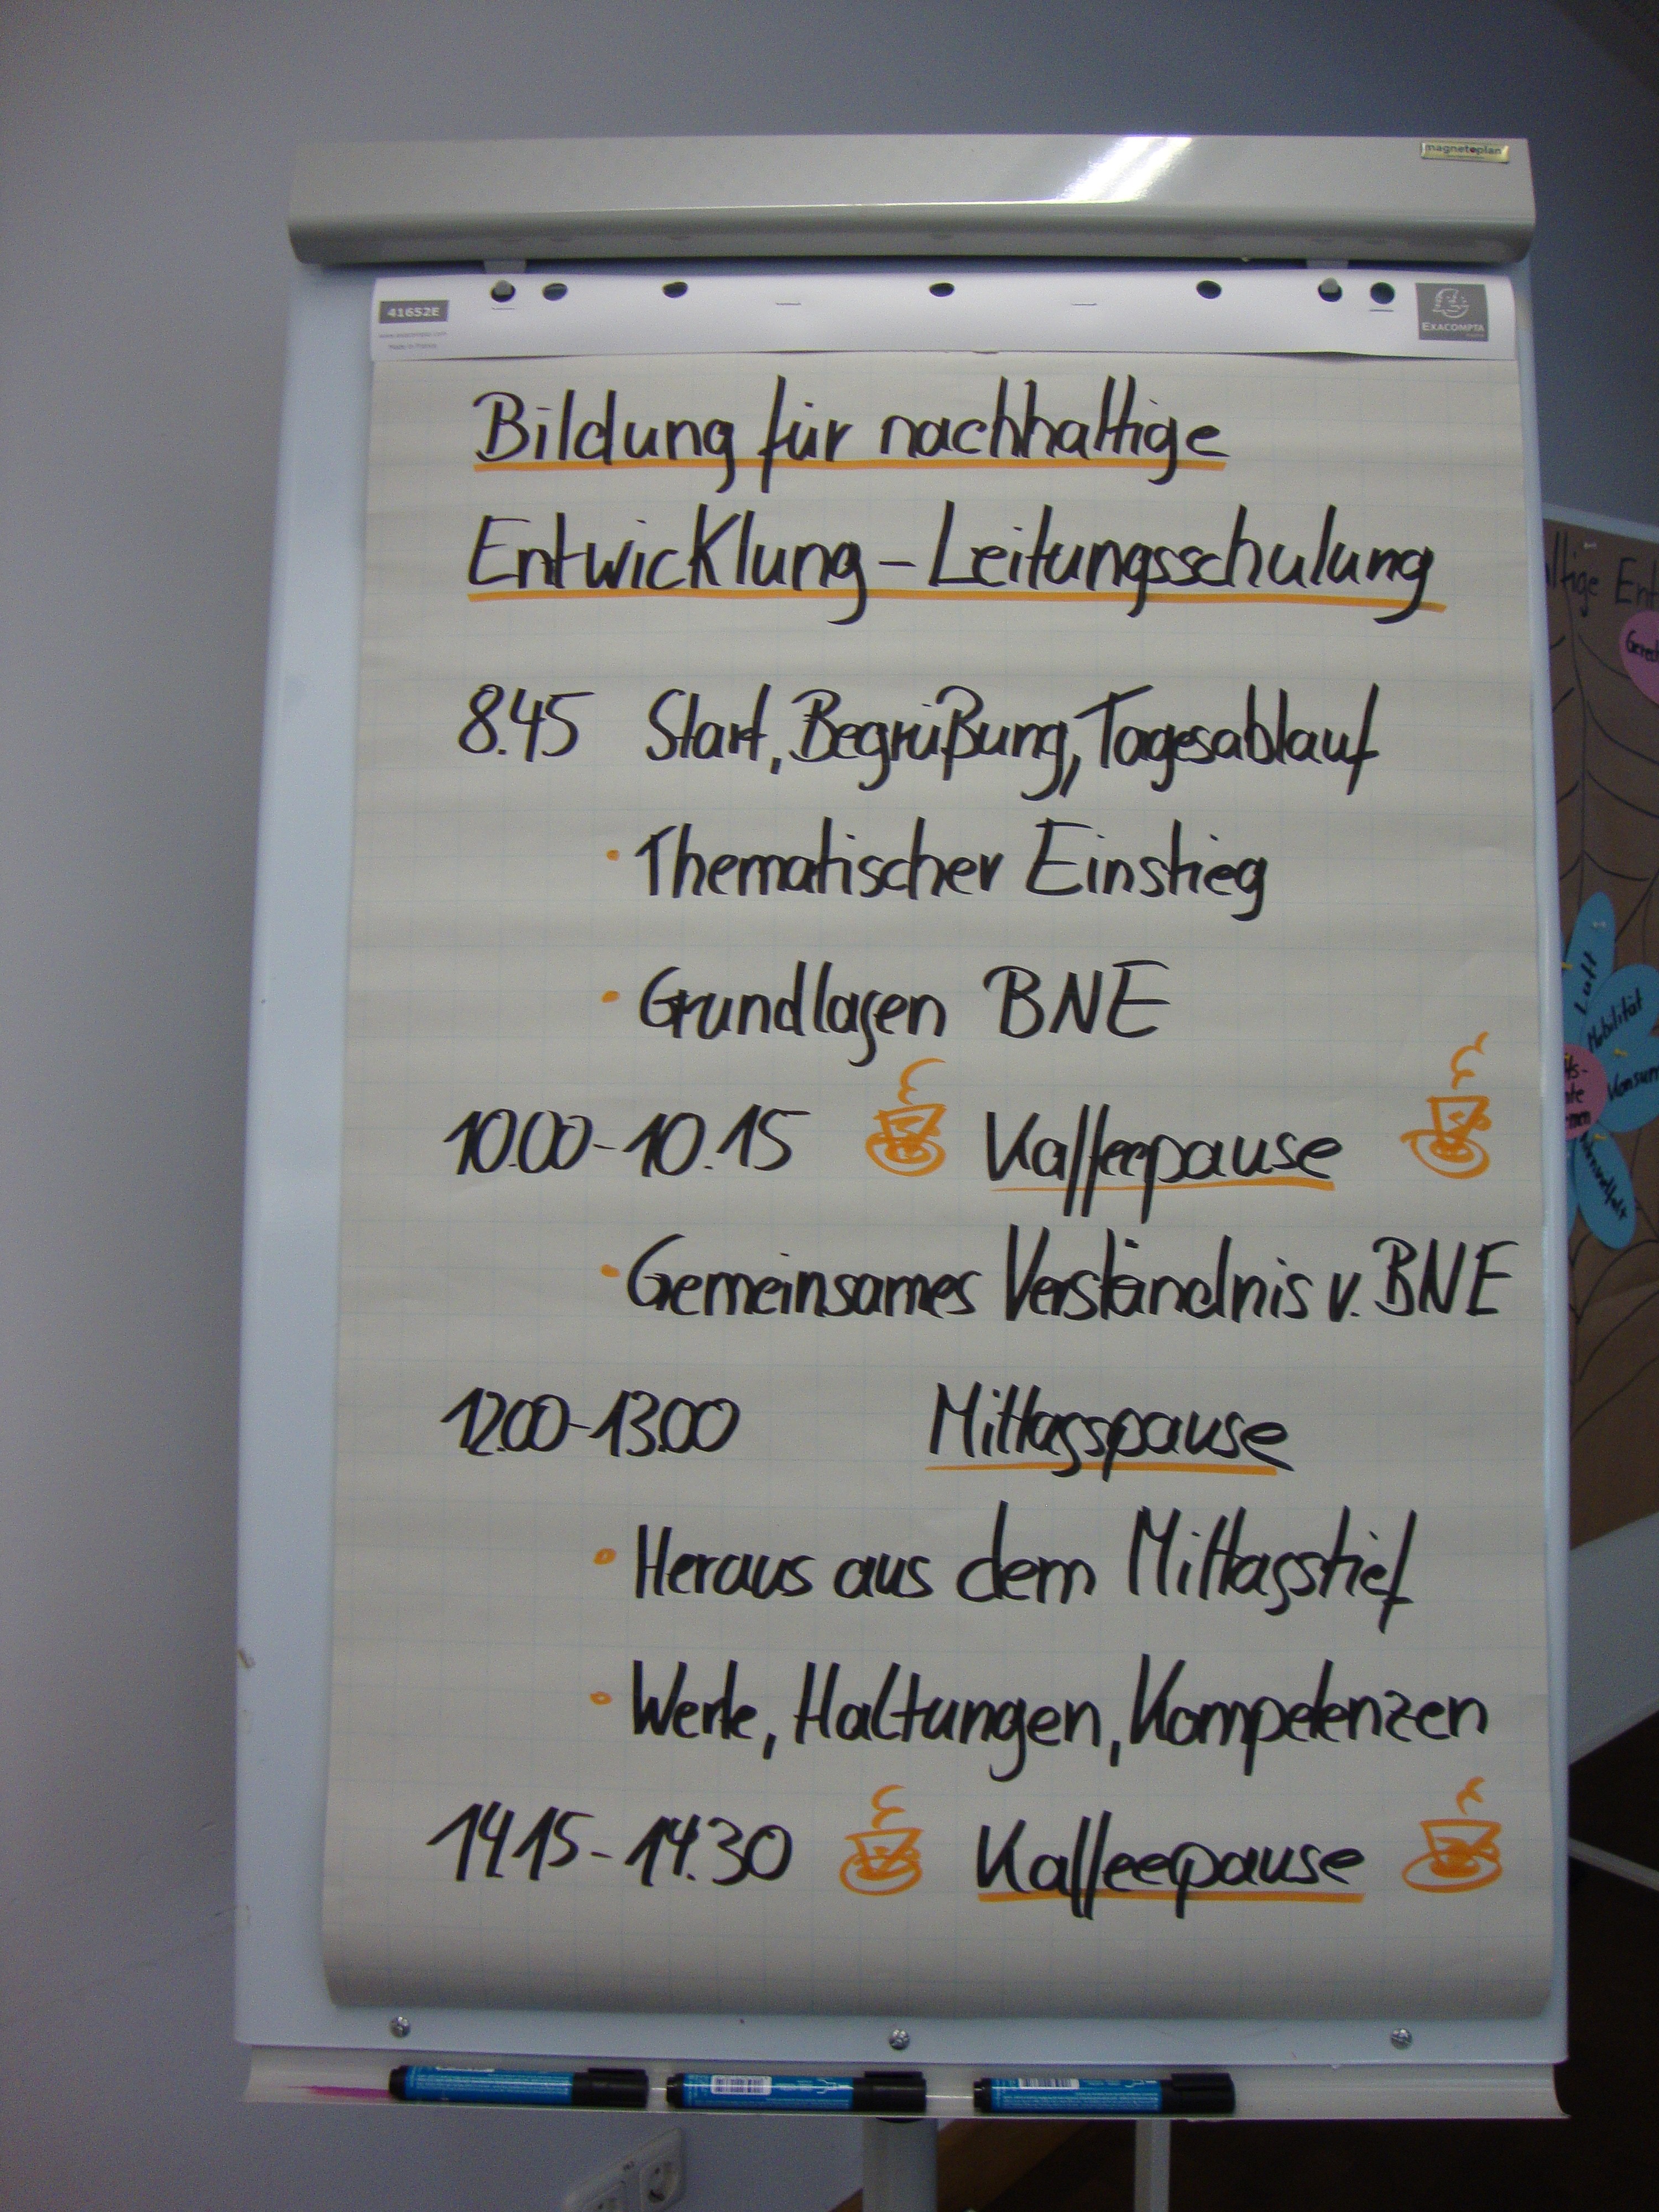 magnetoplan
41652E
EXACOMPTA
Bildung für nachhaltige
Entwicklung - Leitungsschulung
8.45 Start, Begrüßung, Tagesablauf
· Thematischer Einstieg
· Grundlagen BNE
10.00 - 10.15 Kaffeepause
· Gemeinsames Verständnis v. BNE
12.00 - 13.00 Mittagspause
· Heraus aus dem Mittagstief
· Werte, Haltungen, Kompetenzen
14.15 - 14.30 Kaffeepause
ltige Ent
Luft
Mobilität
Konsum